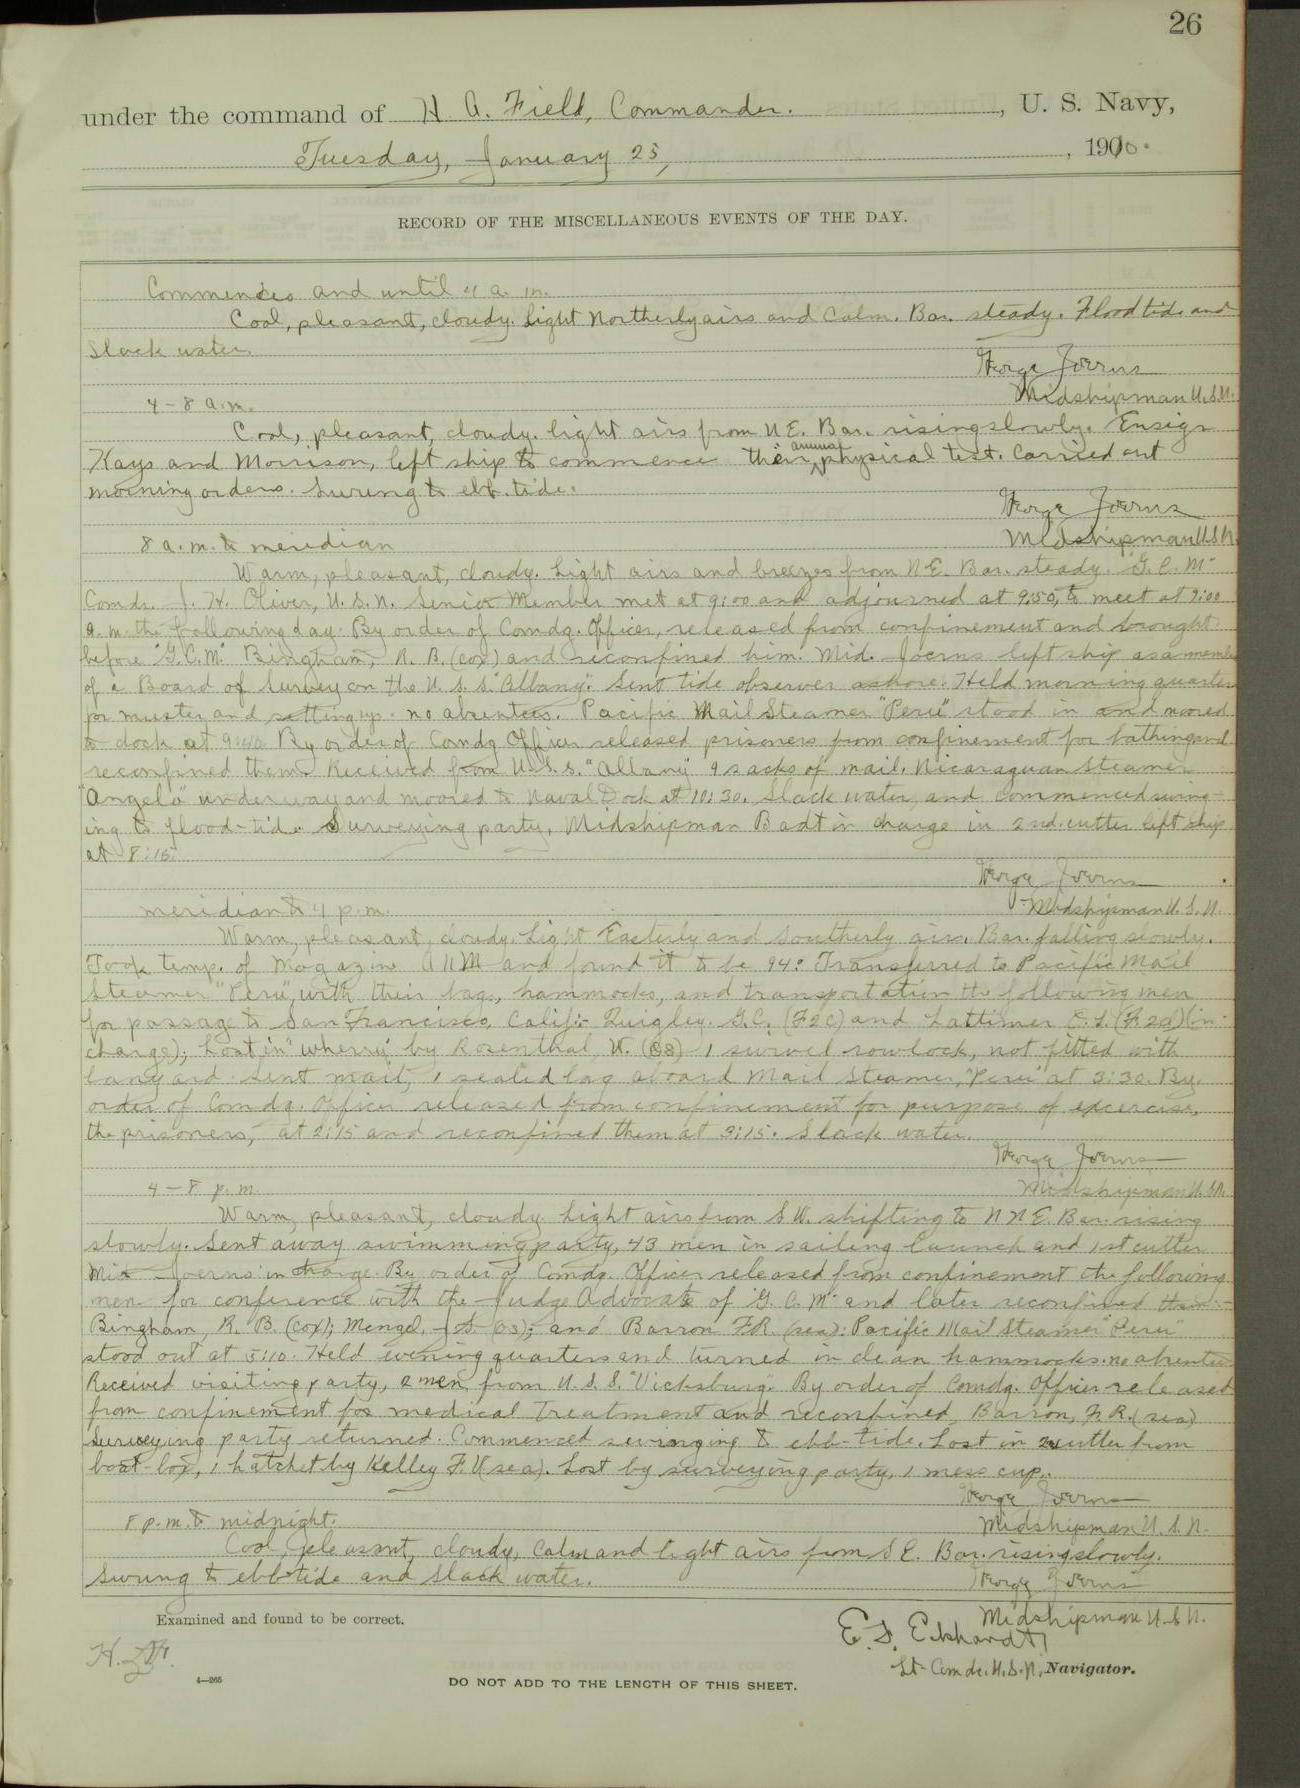 26
under the command of H. A. Field, Commander. , U. S. Navy,
Tuesday, January 25, , 1910.
RECORD OF THE MISCELLANEOUS EVENTS OF THE DAY.
Commences and until 4 a. m.
Cool, pleasant, cloudy. Light Northerly airs and Calm. Bar. steady. Flood tide and
Slack water
George Joerns
Midshipman U.S.N.
4 – 8 a.m.
Cool, pleasant, cloudy. light airs from N E. Bar. rising slowly. Ensign
Kays and Morrison, left ship to commence their annual physical test. Carried out
morning orders. Swung to ebb. tide.
George Joerns
Midshipman U.S.N.
8 a.m. to meridian
Warm, pleasant, cloudy. Light airs and breezes from N E. Bar. steady. "G. C. M"
Comdr. J. H. Oliver, U. S. N. Senior Member met at 9:00 and adjourned at 9:50, to meet at 9:00
a. m. the following day. By order of Comdg. Officer, released from confinement and brought
before "G.C.M." Bingham, R. B. (cox) and reconfined him. Mid. Joerns left ship as a member
of a Board of Survey on the U. S. S. "Albany". Sent tide observer ashore. Held morning quarters
for muster and setting up. no absentees. Pacific Mail Steamer "Peru" stood in and moored
to dock at 9:40 By order of Comdg Officer released prisoners from confinement for bathing and
reconfined them. Received from U.S.S. "Albany" 9 sacks of mail. Nicaraguan Steamer
"Angela" underway and moored to Naval Dock at 10:30. Slack water and commenced swing-
ing to flood-tide. Surveying party, Midshipman Badt in charge in 2nd. cutter left ship
at 8:15.
George Joerns
Midshipman U. S. N.
meridian to 4 p. m.
Warm, pleasant, cloudy. Light Easterly and Southerly airs. Bar. falling slowly.
Took temp. of Magazine A 11 M and found it to be 94° Transferred to Pacific Mail
Steamer "Peru", with their bags, hammocks, and transportation the following men
for passage to San Francisco, Calif:- Quigley. G.C. (F2C) and Lattimer C. L. (F. 2d) (in
charge); Lost in "wherry" by Rosenthal, W. (OS) 1 swivel rowlock, not fitted with
lanyard. Sent mail, 1 sealed bag aboard Mail Steamer, "Peru" at 3:30. By
order of Comdg. Officer released from confinement for purpose of excercise,
the prisoners, at 2:15 and reconfined them at 3:15. Slack water.
George Joerns
Midshipman U. S.N.
4 – 8 p. m.
Warm, pleasant, cloudy. Light airs from S W. shifting to N N E. Bar. rising
slowly. Sent away swimming party, 43 men in sailing launch and 1st cutter
Mid Joerns in charge. By order of Comdg. Officer released from confinement the following
men for conference with the Judge Advocate of "G. C. M" and later reconfined them:-
Bingham, R. B. (cox); Mengel, J S (OS); and Barron F.R. (sea). Pacific Mail Steamer "Peru"
stood out at 5:10. Held evening quarters and turned in clean hammocks. no absentees
Received visiting party, 2 men, from U. S. S. "Vicksburg". By order of Comdg. Officer released
from confinement for medical treatment and reconfined, Barron, F. R. (sea)
Surveying party returned. Commenced swinging to ebb-tide. Lost in 2 cutter from
boat-box, 1 hatchet by Kelley F. V (sea). Lost by surveying party, 1 mess cup.
George Joerns
Midshipman U. S. N.
8 p. m. to midnight.
Cool, pleasant, cloudy, Calm and light airs from S E. Bar. rising slowly.
Swung to ebb tide and slack water.
George Joerns
Midshipman U. S. N.
Examined and found to be correct.
E. S. Eckhardt
Lt- Comdr. U. S. N., Navigator.
4—265
DO NOT ADD TO THE LENGTH OF THIS SHEET.